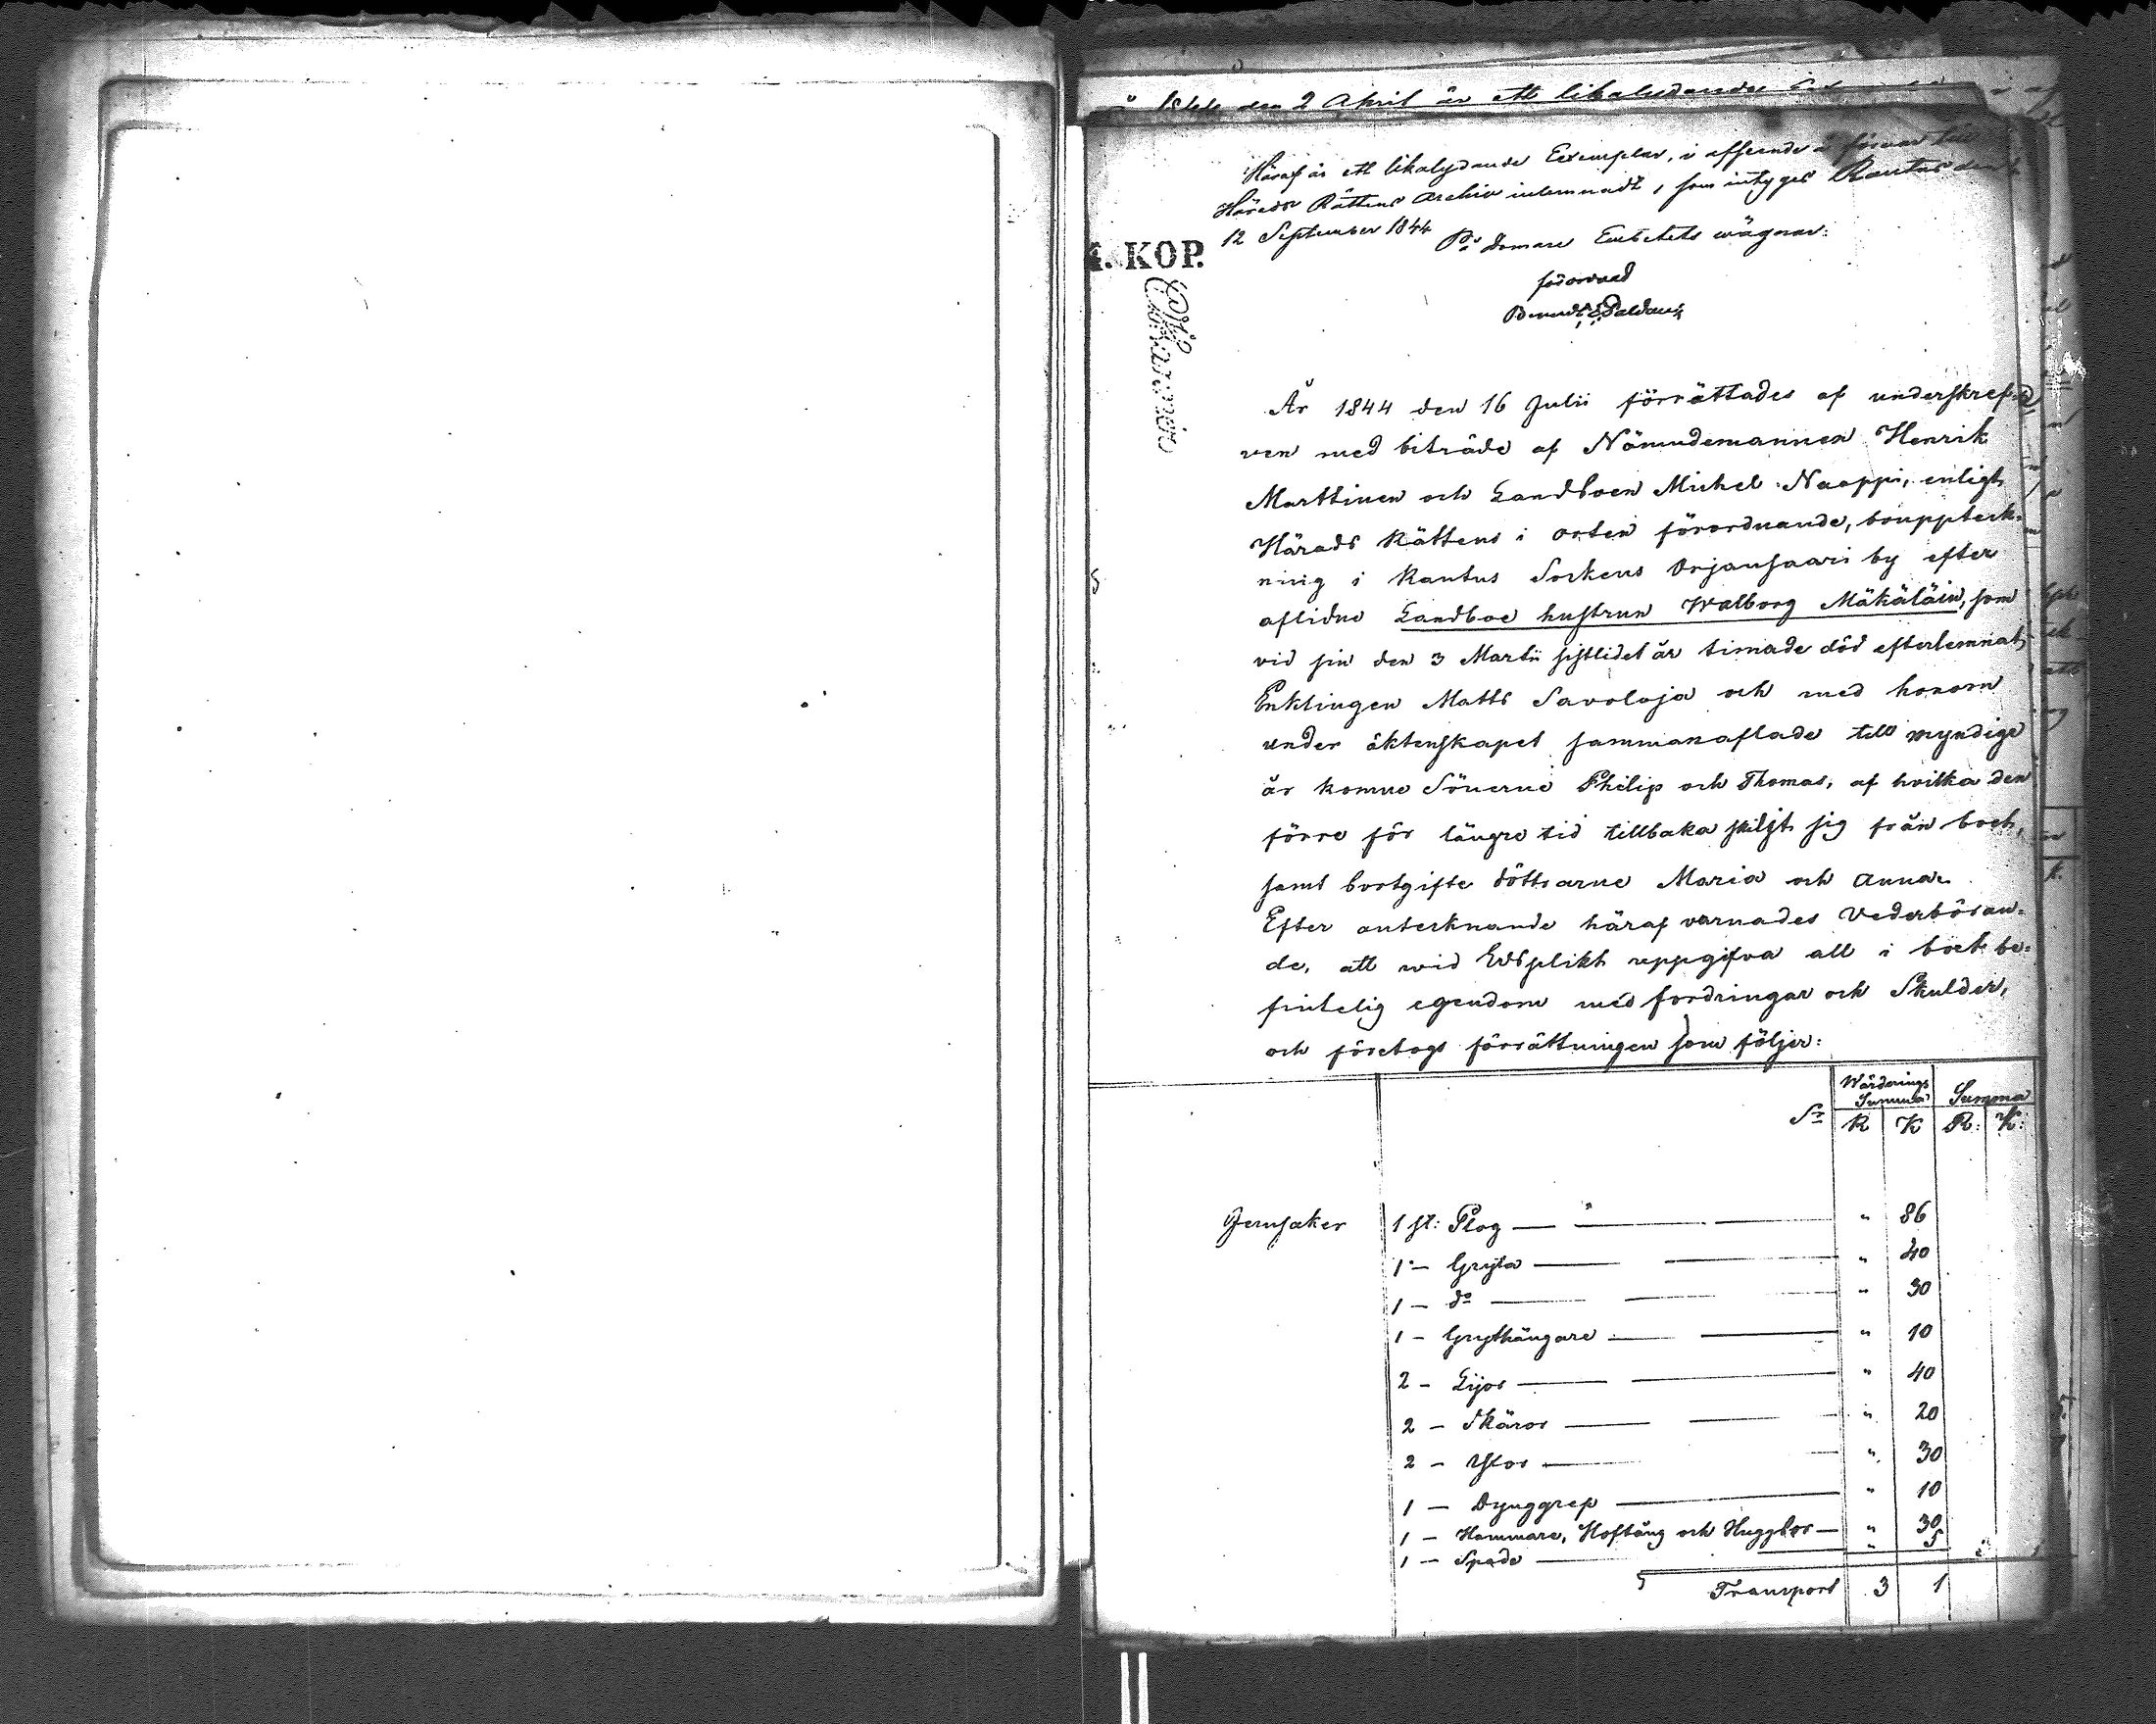 den 2 April är ett likalydande
Häraf är ett likalydande Exemplar, i afseende å förvar till
Härads Rättens Archiv inlemnadt, som intygas Rautus den
12 September 1844
På Domare Embetets wägnar:
förordnad
4. KOP.
År 1844 den 16 Julii förrättades af underskref-
ven med biträde af Nämndemannen Henrik
Marttinen och Landboen Michel Naappi, enligt
Härads Rättens i orten förordnande, bouppteck-
ning i Rautus Sockens Orjansaari by efter
aflidne Landboe hustrun Walborg Mäkäläin, som
vid sin den 3 Martii sistlidet år timade död efterlemnat
Enklingen Matts Savolaja och med honom
under äktenskapet sammanaflade till myndige
år komne Sönerne Philip och Thomas, af hvilka den
förre för längre tid tillbaka skiljt sig från boet,
samt bortgifte döttrarne Maria och Anna.
Efter anteknande häraf varnades Vederböran-
de, att wid Edsplikt uppgifva all i boet be-
fintelig egendom med fordringar och Skulder,
och företogs förrättningen som följer:
Wärderings Summa Summa
Sr R K R: K:
Jernsaker 1 st: Plog — " 86
1 — Gryta — " 40
1 — do — " 30
1 — Grythängare — " 10
2 — Lijor — " 40
2 — Skäror — " 20
2 — Yxor — " 30
1 — Dynggrep — " 10
1 — Hammare, Hoftång och Huggbor — " 30
1 — Spade — " 5
Transport 3 1